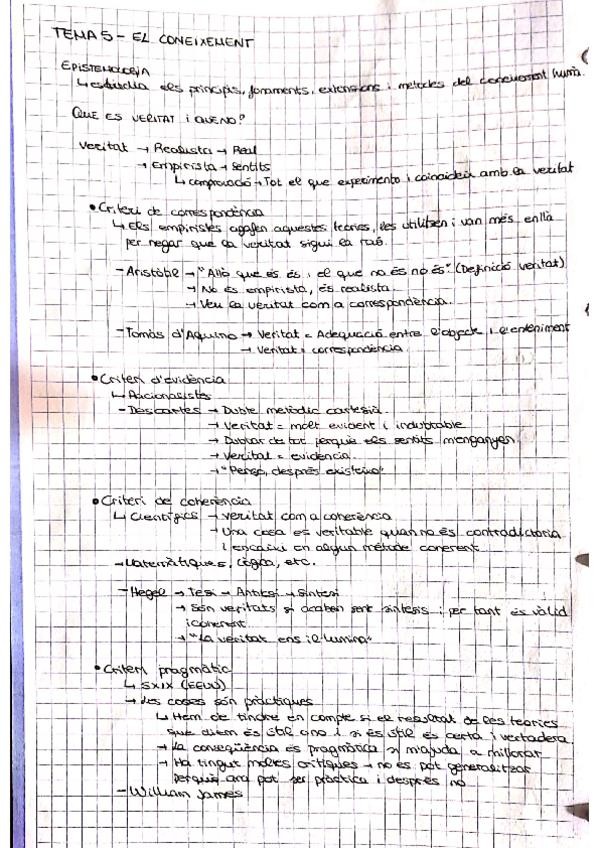 TEMA 5 - EL CONEIXEMENT
EPISTEMOLOGIA
↳ estudia els principis, fonaments, extensions i metodes del coneixement humà.
QUE ES VERITAT I QUE NO?
Veritat → Realista → Real
→ Empirista → sentits
↳ comprovació → Tot el que experimento i coincideix amb la veritat
• Criteri de correspondència
↳ Els empiristes agafen aquestes teories, les utilitzen i van més enllà
per negar que la veritat sigui la raó.
- Aristòtil → "Allò que és és i el que no és no és" (Definició veritat)
→ No és empirista, és realista.
→ Veu la veritat com a correspondència.
- Tomàs d'Aquino → Veritat = Adequació entre l'objecte i l'enteniment
→ Veritat = correspondència.
• Criteri d'evidència
↳ Racionalistes
- Descartes → Dubte metòdic cartesià.
→ Veritat = molt evident i indubtable
→ Dubtar de tot perquè els sentits m'enganyen.
→ Veritat = evidència.
→ "Penso, després existeixo"
• Criteri de coherència
↳ Científics → veritat com a coherència
→ Una cosa es veritable quan no és contradictoria
i encaixi en algun mètode coherent
→ Matemàtiques, lògica, etc.
- Hegel → Tesi → Antítesi → Síntesi
→ Són veritats si acaben sent síntesis i per tant és vàlid
i coherent.
→ "La veritat ens il·lumina"
• Criteri pragmàtic
↳ SXIX (EEUU)
→ Les coses són pràctiques
↳ Hem de tindre en compte si el resultat de les teories
que diem és útil o no i si és útil és certa i vertadera.
→ La conseqüència és pragmàtica si m'ajuda a millorar
→ Ha tingut moltes crítiques → no es pot generalitzar
perquè ara pot ser pràctica i després no
- William James